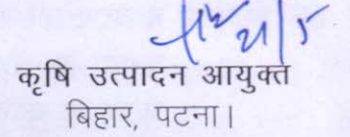 21/5
कृषि उत्पादन आयुक्त
बिहार, पटना।